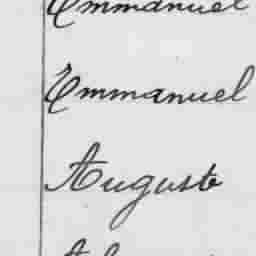 Emmanuel
Emmanuel
Auguste